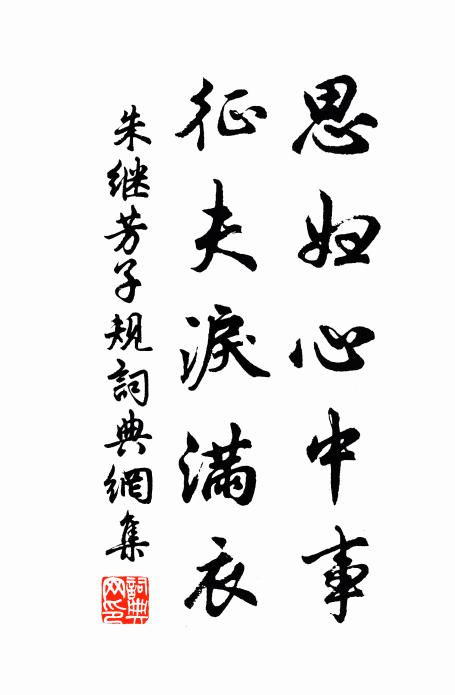 思妇心中事
征夫淚满衣
朱继芳子规詞典網集
詞典网印